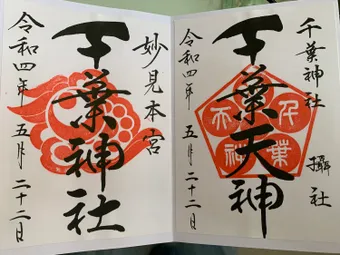 千葉神社 攝社
千葉天神
令和四年 五月二十二日
妙見本宮
千葉神社
令和四年 五月二十二日